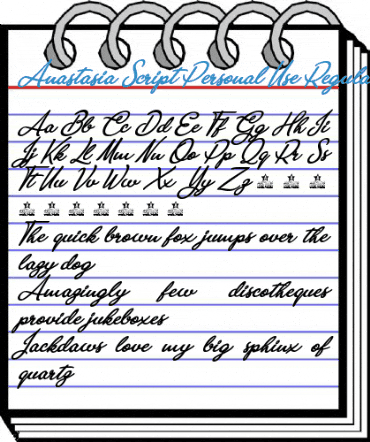 Anastasia Script Personal Use Regula
Aa Bb Cc Dd Ee Ff Gg Hh Ii
Jj Kk Ll Mm Nn Oo Pp Qq Rr Ss
Tt Uu Vv Ww Xx Yy Zz
The quick brown fox jumps over the
lazy dog
Amazingly few discotheques
provide jukeboxes
Jackdaws love my big sphinx of
quartz